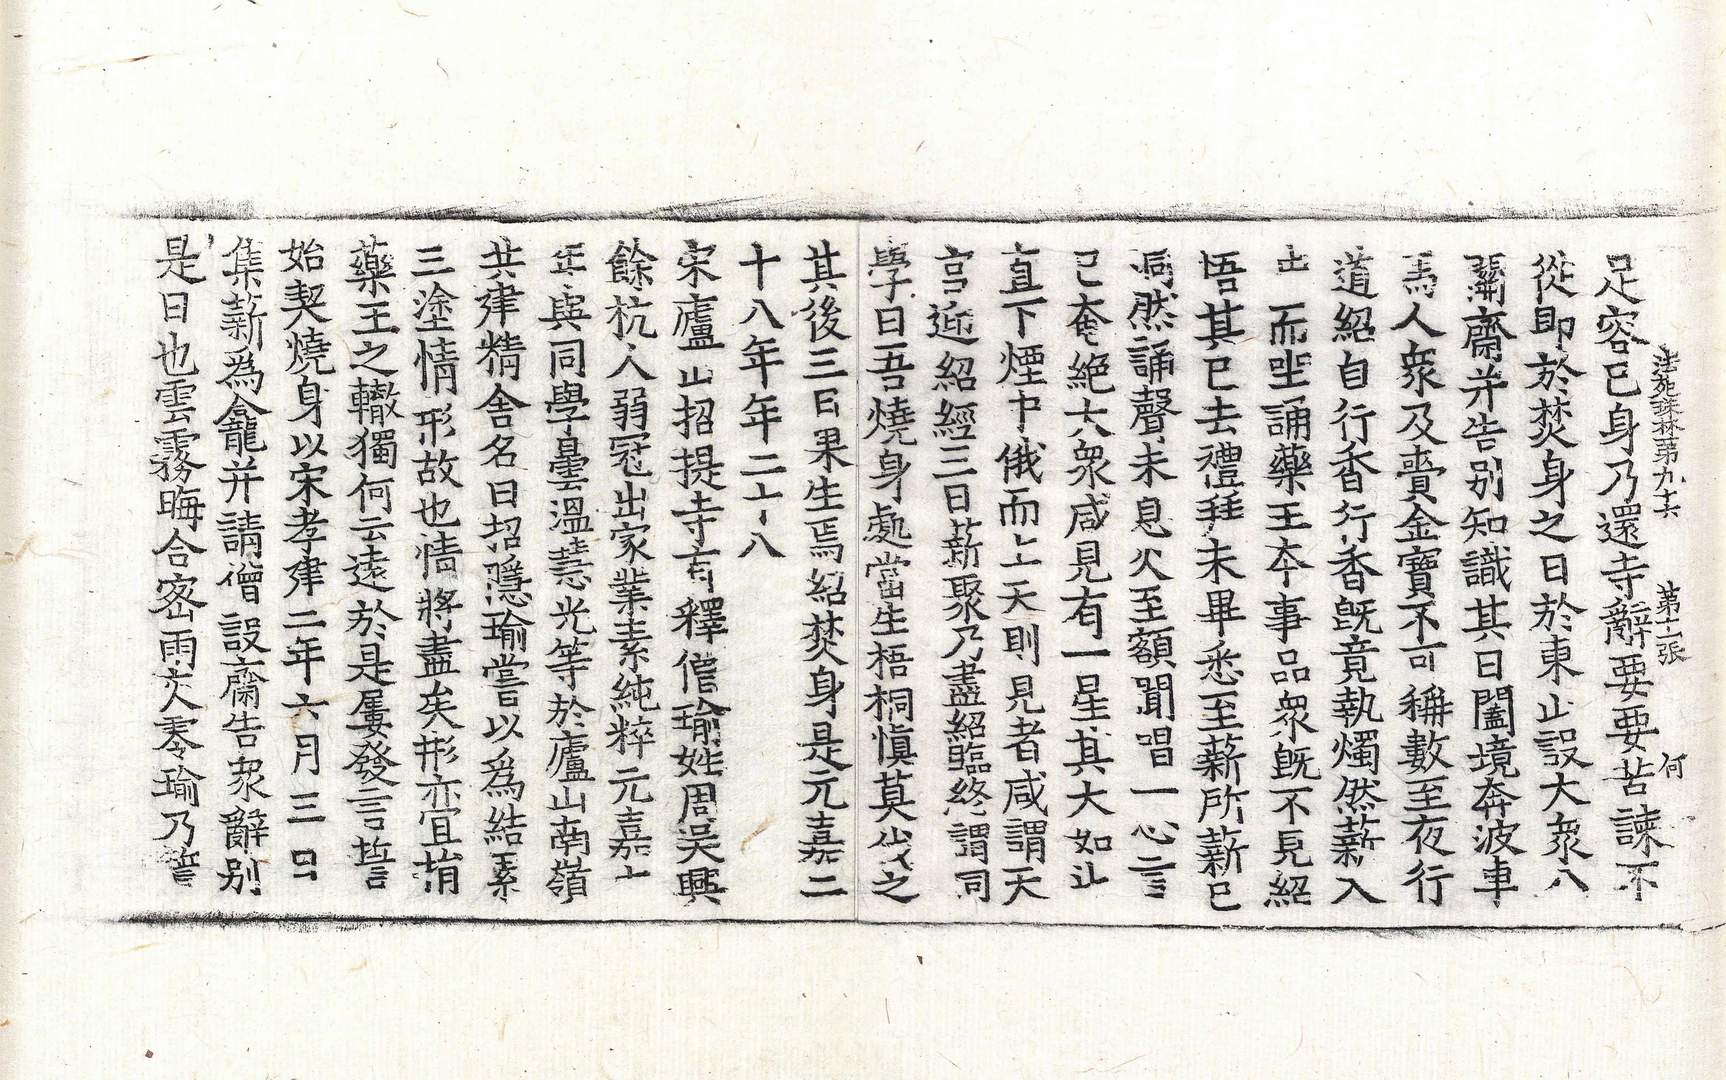 法苑珠林第九十六 第十二張 何
足容已身乃還寺辭要要苦諫不
從即於焚身之日於東山設大衆八
關齋并告別知識其日闔境奔波車
馬人衆及賫金寶不可稱數至夜行
道紹自行香行香旣竟執燭然薪入
中而坐誦藥王本事品衆旣不見紹
悟其已去禮拜未畢悉至薪所薪已
洞然誦聲未息火至額聞唱一心言
已奄絶大衆咸見有一星其大如斗
直下煙中俄而上天則見者咸謂天
宮迎紹經三日薪聚乃盡紹臨終謂同
學曰吾燒身處當生梧桐愼莫伐之
其後三日果生焉紹焚身是元嘉二
十八年年二十八
宋廬山招提寺有釋僧瑜姓周吳興
餘杭人弱冠出家業素純粹元嘉十
年與同學曇溫慧光等於廬山南嶺
共建精舍名曰招隱瑜嘗以爲結累
三塗情形故也情將盡矣形亦宜捐
藥王之轍獨何云遠於是屢發言誓
始契燒身以宋孝建二年六月三日
集薪爲龕并請僧設齋告衆辭別
是日也雲霧晦合密雨交零瑜乃誓